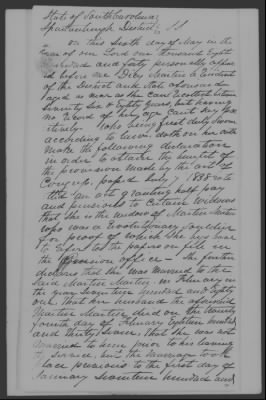 State of South Carolina
Spartanburgh District } SS
On this Sixth day of May in the
year of our Lord one thousand Eight
Hundred and forty personally appea
red before me Dicy Martin a Resident
of the District and State aforesaid
aged as near as she can Establish between
Seventy Six & Eighty years, but having
no record of her age can't Say posi
tively. Who being first duly Sworn
according to law, doth on her oath
make the following declaration
in order to obtain the benefit of
the provision made by the act of
Congress, passed July 7 1838 enti
tled an act granting half pay
and pensions to certain widows
that she is the widow of Martin Martin
who was a Revolutionary Soldier
for proof of which she begs leave
to refer to the papers on file in
the Pension office — She further
declares that she was married to the
said Martin Martin in February in
the year Seventeen hundred and Eighty
one. That her husband the aforesaid
Martin Martin died on the twenty
fourth day of February Eighteen hundred
and thirty Seven. That she was not
married to him prior to his leaving
the service, but the marriage took
place previous to the first day of
January Seventeen hundred and